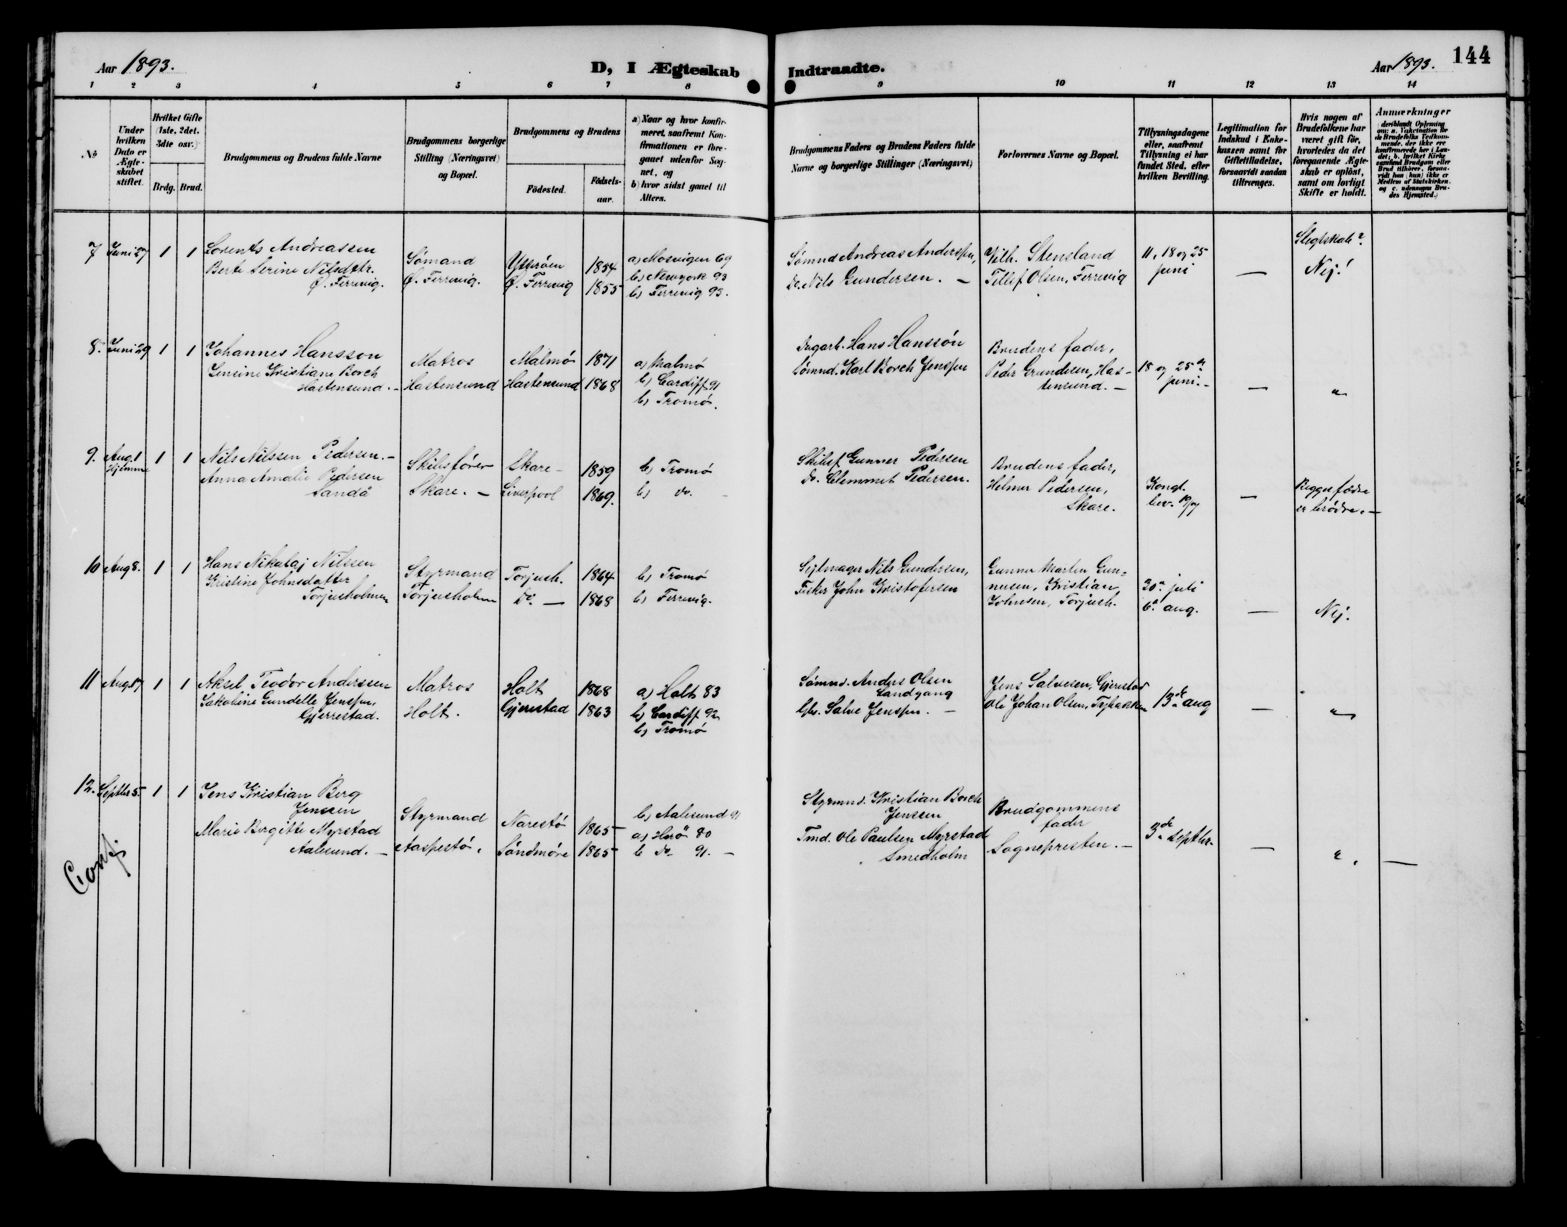 Aar 1893.
D, I Ægteskab
Indtraadte.
Aar 1893.
144
1 2 3 4 5 6 7 8 9 10 11 12 13 14
No
Under hvilken Dato er Ægteskabet stiftet.
Hvilket Gifte (1ste, 2det, 3die osv.)
Brdg. Brud.
Brudgommens og Brudens fulde Navne
Brudgommens borgerlige Stilling (Næringsvei) og Bopæl.
Brudgommens og Brudens
Fødested.
Fødselsaar.
a) Naar og hvor konfirmeret, saafremt Konfirmationen er foregaaet udenfor Sognet, og
b) hvor sidst gaaet til Alters.
Brudgommens Faders og Brudens Faders fulde Navne og borgerlige Stillinger (Næringsvei)
Forlovernes Navne og Bopæl.
Tillysningsdagene eller, saafremt Tillysning ei har fundet Sted, efter hvilken Bevilling.
Legitimation for Indskud i Enkekassen samt for Giftetilladelse, forsaavidt saadan tiltrænges.
Hvis nogen af Brudefolkene har været gift før, hvorledes da det foregaaende Ægteskab er opløst, samt om lovligt Skifte er holdt.
Anmærkninger
7 Juni 27 1 1 Lorents Andreassen
Berte Serine Nilsdtr.
Ø. Færevig.
Sømand
Ø. Færevig.
Ø. Færevig
1854
1855
a) Mosvigen 69
b) Newyork 93
b) Færevig 93.
Sømnd Andreas Anderssen,
do. Nils Gundersen. –
Vilh. Stensland
Tellef Olsen, Færevig
11, 18 og 25
juni
—
Slegtskab?
Nej!
8. Juni 29 1 1 Johannes Hansson
Jensine Kristiane Borch
Hastensund. –
Matros
Hastensund
Malmø
Hastensund
1871
1868
a) Malmø
b) Cardiff 91
b) Tromø.
Hans Hansson
Sømnd. Karl Borch Jenssen
Brudens fader,
Peder Gundersen, Hastensund. –
18 og 25de
juni. –
—
"
9. Aug. 1 1 1 Nils Nilssen Pedersen. –
Hjemme
Anna Amalie Pedersen
Sandå
Skibsfører
Skare. –
Skare –
Liverpool
1859
1869.
b) Tromø
b) do. –
Skibsf Gunner Pedersen
do. Clemmet Pedersen.
Brudens fader,
Helmer Pedersen,
Skare.
Kongl.
bev.
—
Begges fædre
er brødre. –
10 Aug 8. 1 1 Hans Nikolaj Nilssen
Kristine Johnsdatter
Torjusholmen
Styrmand
Torjusholmen
Torjush.
Do. –
1864
1868
b) Tromø
b) Færevig.
Sejlmager Nils Gundersen,
Fisker John Kristofersen
Gunner Martin Gunnusen, Kristian
Johnsen, Torjush.
30te juli
6te aug.
—
Nej.
11 Aug 17 1 1 Aksel Teodor Anderssen
Jakobine Gundelle Jenssen,
Gjerrestad.
Matros
Holt.
Holt
Gjerrestad
1868
1863
a) Holt 83
b) Cardiff 92
b) Tromø
Sømnd. Anders Olsen
Landgang
Gbr. Salve Jenssen. –
Jens Salvesen, Gjerrestad
Ole Johan Olsen,
13de aug
—
"
12. Septbr 5. 1 1 Jens Kristian Berg
Jenssen
Marie Birgitte Myrstad
Aalesund. –
Styrmand
Narestø
Søndmøre
1865
1865
b) Aalesund 91
a) Herø 80
b do 91. –
Styrmnd. Kristian Borch
Jenssen
Tmd. Ole Paulsen Myrstad
Smedholm
Brudgommens
fader
Sognepresten. –
3de septbr.
—
" . —
Conf.